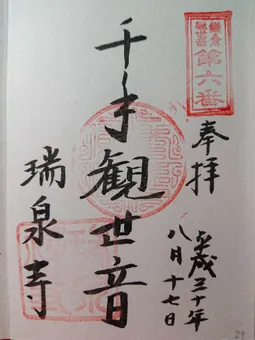 鎌倉
観世音
第六番
奉拝
平成三十年
八月十七日
千手観世音
瑞泉寺
24